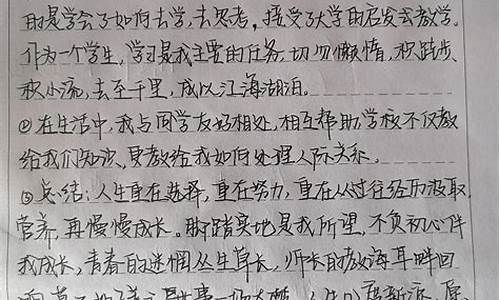 的是学会了如何去学,去思考。接受了大学的启发式教学。
作为一个学生,学习是我主要的任务,切勿懒惰,积跬步、
积小流,去至千里,成以江海湖泊。
②在生活中,我与同学友好相处,相互帮助,学校不仅教
给我们知识,更教给我如何处理人际关系。
③总结:人生重在选择,重在努力,重在从过往经历汲取
营养,再慢慢成长。脚踏实地是我所望,不负初心伴
我成长,青春的迷惘丛生草长,师长的教诲耳畔回